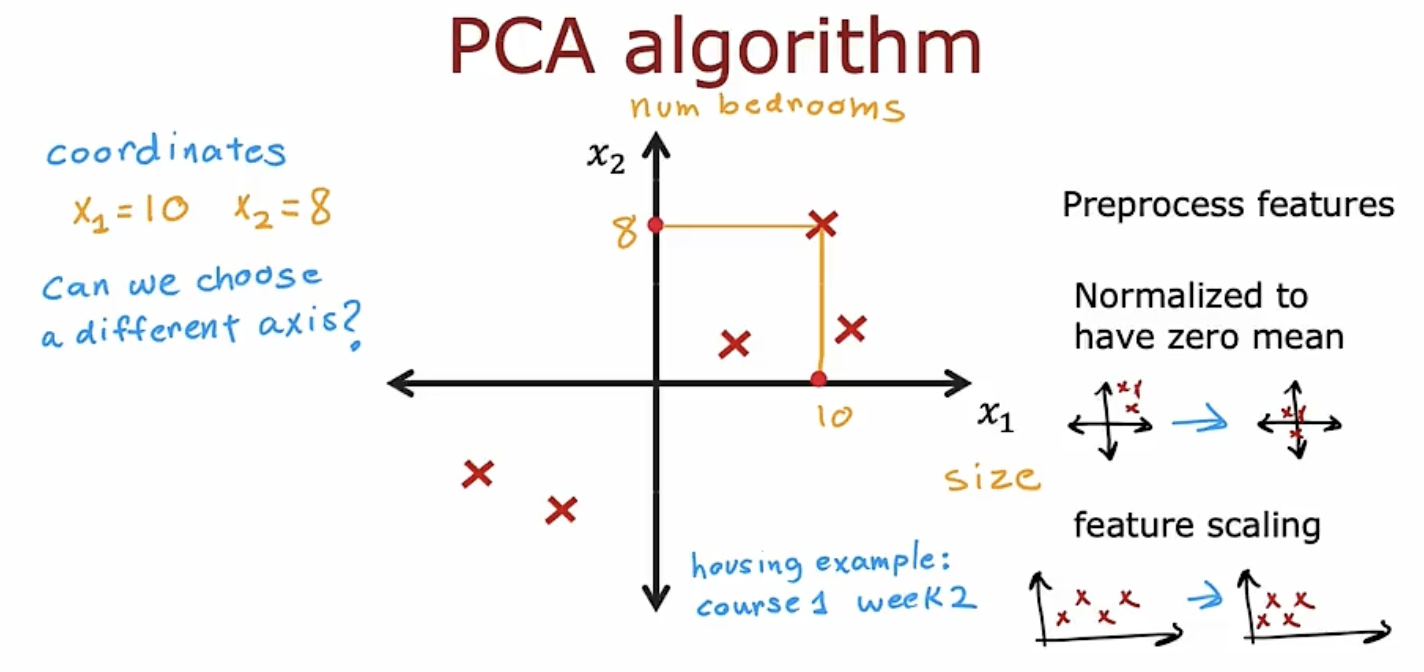 PCA algorithm
num bedrooms
coordinates
x₁ = 10 x₂ = 8
Can we choose
a different axis?
x₂
8
10
x₁
size
housing example:
course 1 week 2
Preprocess features
Normalized to
have zero mean
feature scaling